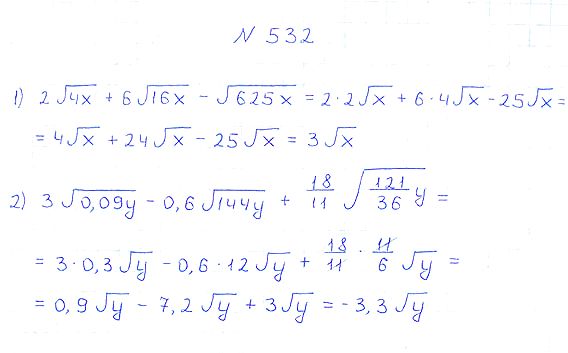 N 532
1) 2√4x + 6√16x - √625x = 2·2√x + 6·4√x - 25√x =
= 4√x + 24√x - 25√x = 3√x
2) 3√0,09y - 0,6√144y + 18/11 √(121/36 y) =
= 3·0,3√y - 0,6·12√y + 18/11 · 11/6 √y =
= 0,9√y - 7,2√y + 3√y = -3,3√y